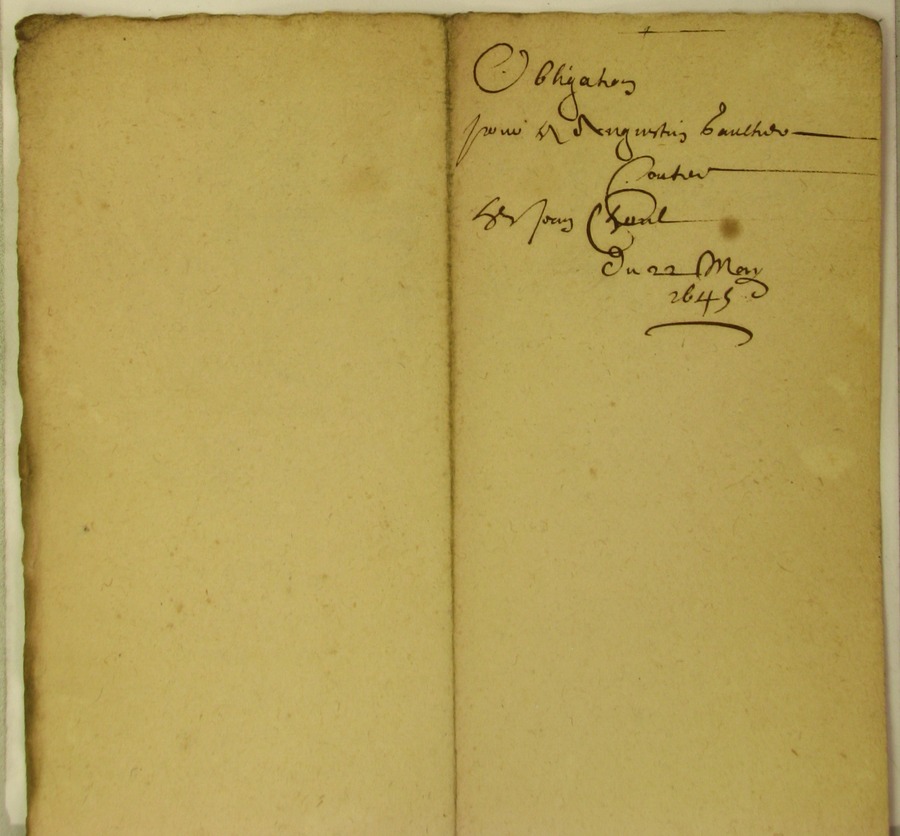 Obligation
pour Augustin Gaultier
Contre
Jean
Du 22 May
1645